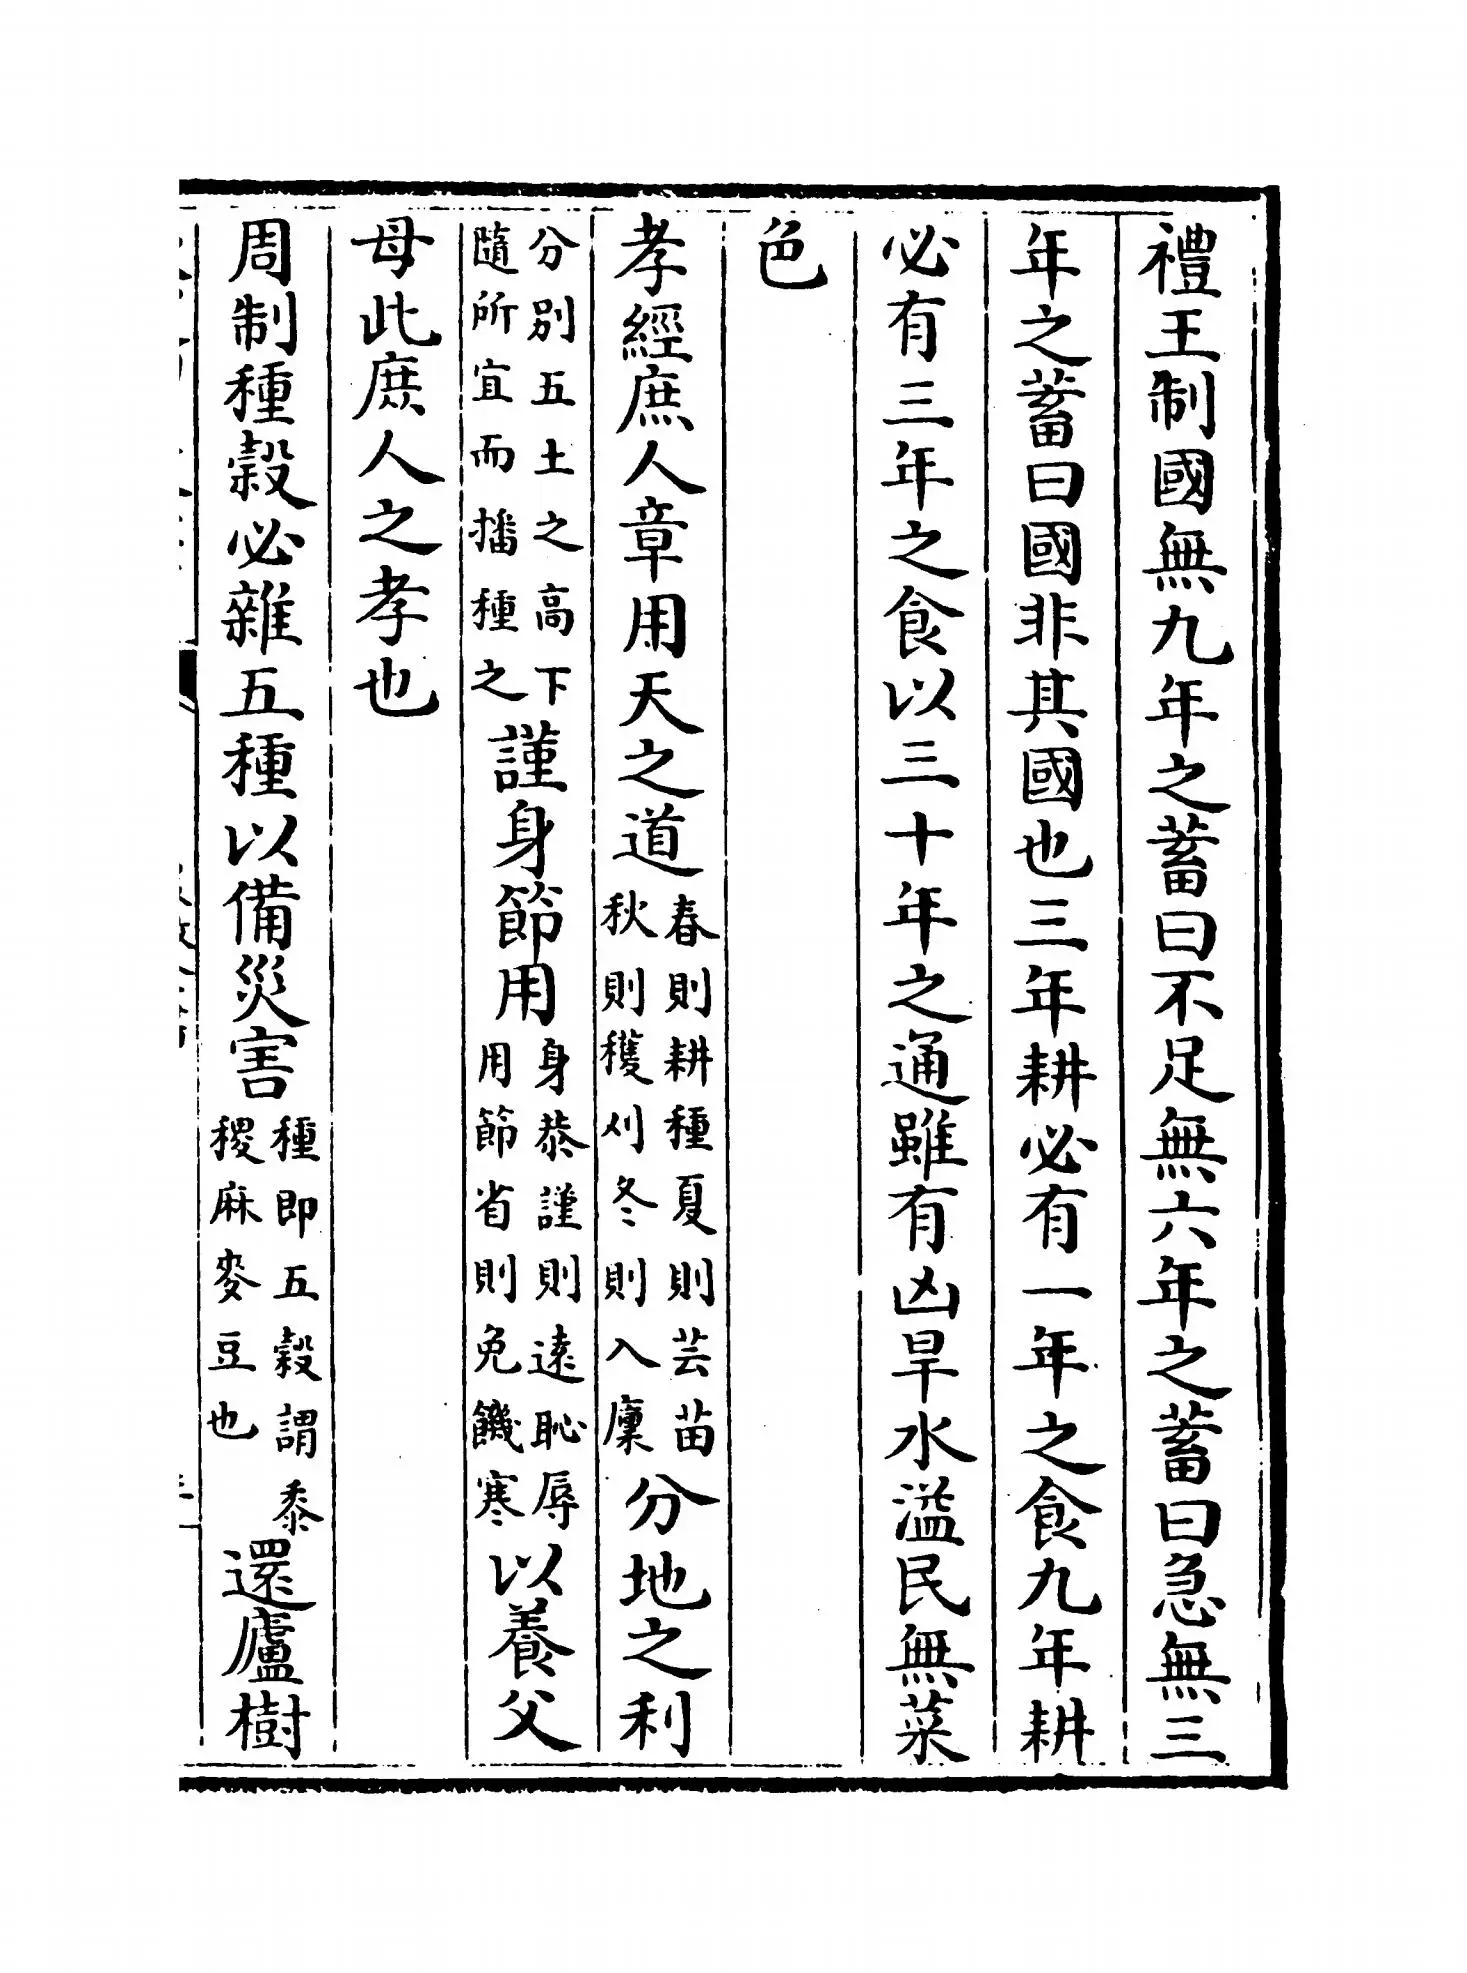 禮王制國無九年之蓄曰不足無六年之蓄曰急無三
年之蓄曰國非其國也三年耕必有一年之食九年耕
必有三年之食以三十年之通雖有凶旱水溢民無菜
色
孝經庶人章用天之道春則耕種夏則芸苗秋則穫刈冬則入廩分地之利
分別五土之高下隨所宜而播種之謹身節用身恭謹則遠恥辱用節省則免饑寒以養父
母此庶人之孝也
周制種穀必雜五種以備災害種即五穀謂黍稷麻麥豆也還廬樹